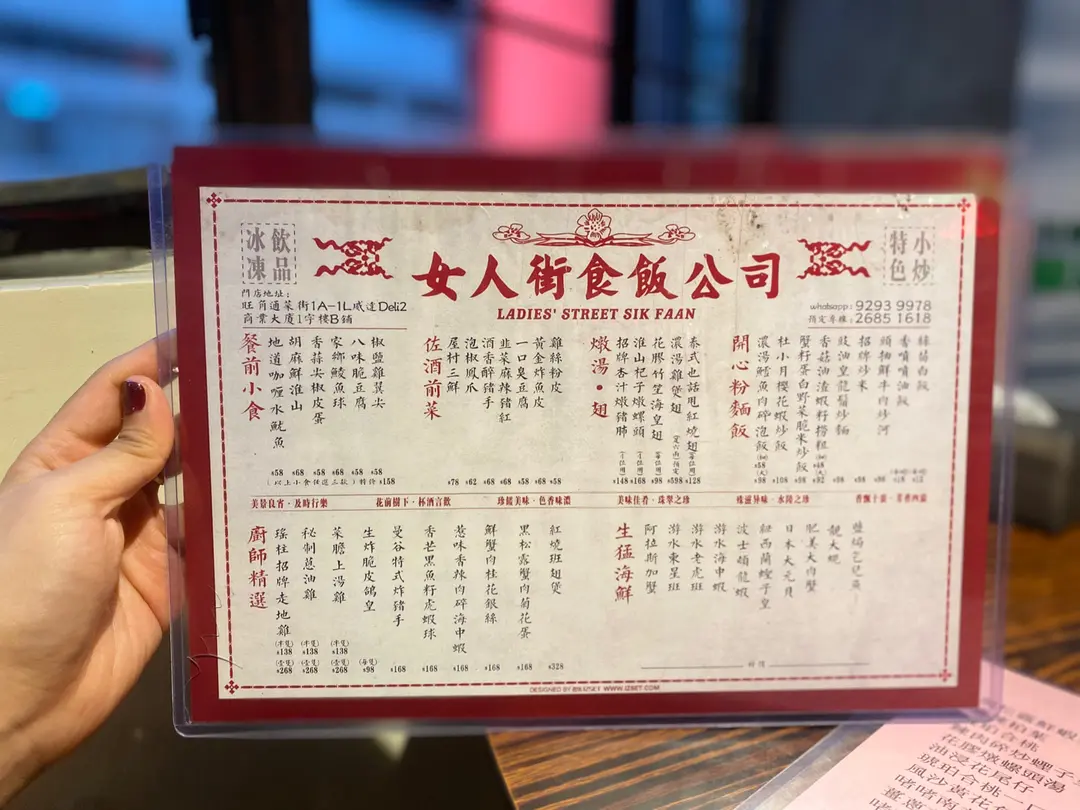 飲品
冰凍
女人街食飯公司
LADIES' STREET SIK FAAN
小炒
特色
門店地址:
旺角通菜街1A-1L威達Deli2
商業大廈1字樓B鋪
whatsapp: 9293 9978
預定專線: 2685 1618
餐前小食
地道咖喱水魷魚 $58
胡麻鮮淮山 $68
香蒜尖椒皮蛋 $58
家鄉鯪魚球 $68
八味脆豆腐 $58
椒鹽雞翼尖 $58
(以上小食任選三款) 特價 $158
佐酒前菜
屋村三鮮 $78
泡椒鳳爪 $62
酒香醉豬手 $68
韭菜麻辣豬紅 $68
一口臭豆腐 $58
黃金炸魚皮 $68
雞絲粉皮 $58
燉湯・翅
招牌杏汁燉豬肺 $148
淮山杞子燉螺頭 $168
花膠竹笙海皇翅 $98
濃湯雞煲翅 $598
泰式也話甩紅燒翅 $128
開心粉麵飯
濃湯鱈魚肉碎泡飯
杜小月櫻花蝦炒飯 $108
蟹籽蛋白野菜脆米炒飯 $98
香菇油渣蝦籽撈粗
豉油皇龍鬚炒麵
招牌炒米
頭抽鮮牛肉炒河
香噴噴油飯
絲苗白飯
美景良宵・及時行樂
花前樹下・杯酒言歡
珍饈美味・色香味濃
美味佳肴・珠翠之珍
殊滋异味・水陸之珍
廚師精選
瑤柱招牌走地雞 (半隻) $138 (壹隻) $268
秘制蔥油雞 (半隻) $138 (壹隻) $268
菜膽上湯雞 (半隻) $138 (壹隻) $268
生炸脆皮鴿皇 (每隻) $98
曼谷特式炸豬手 $168
香芒黑魚籽虎蝦球 $168
惹味香辣肉碎海中蝦 $168
鮮蟹肉桂花銀絲 $168
黑松露蟹肉菊花蛋 $168
紅燒班翅煲 $328
生猛海鮮
阿拉斯加蟹
游水東星班
游水老虎班
游水海中蝦
波士頓龍蝦
紐西蘭蟶子皇
日本大元貝
肥美大肉蟹
靚大蜆
鹽焗乞兒魚
時價
DESIGNED BY WWW.IZSET.COM
花膠燉螺頭湯
油浸花尾仔
琥珀合桃